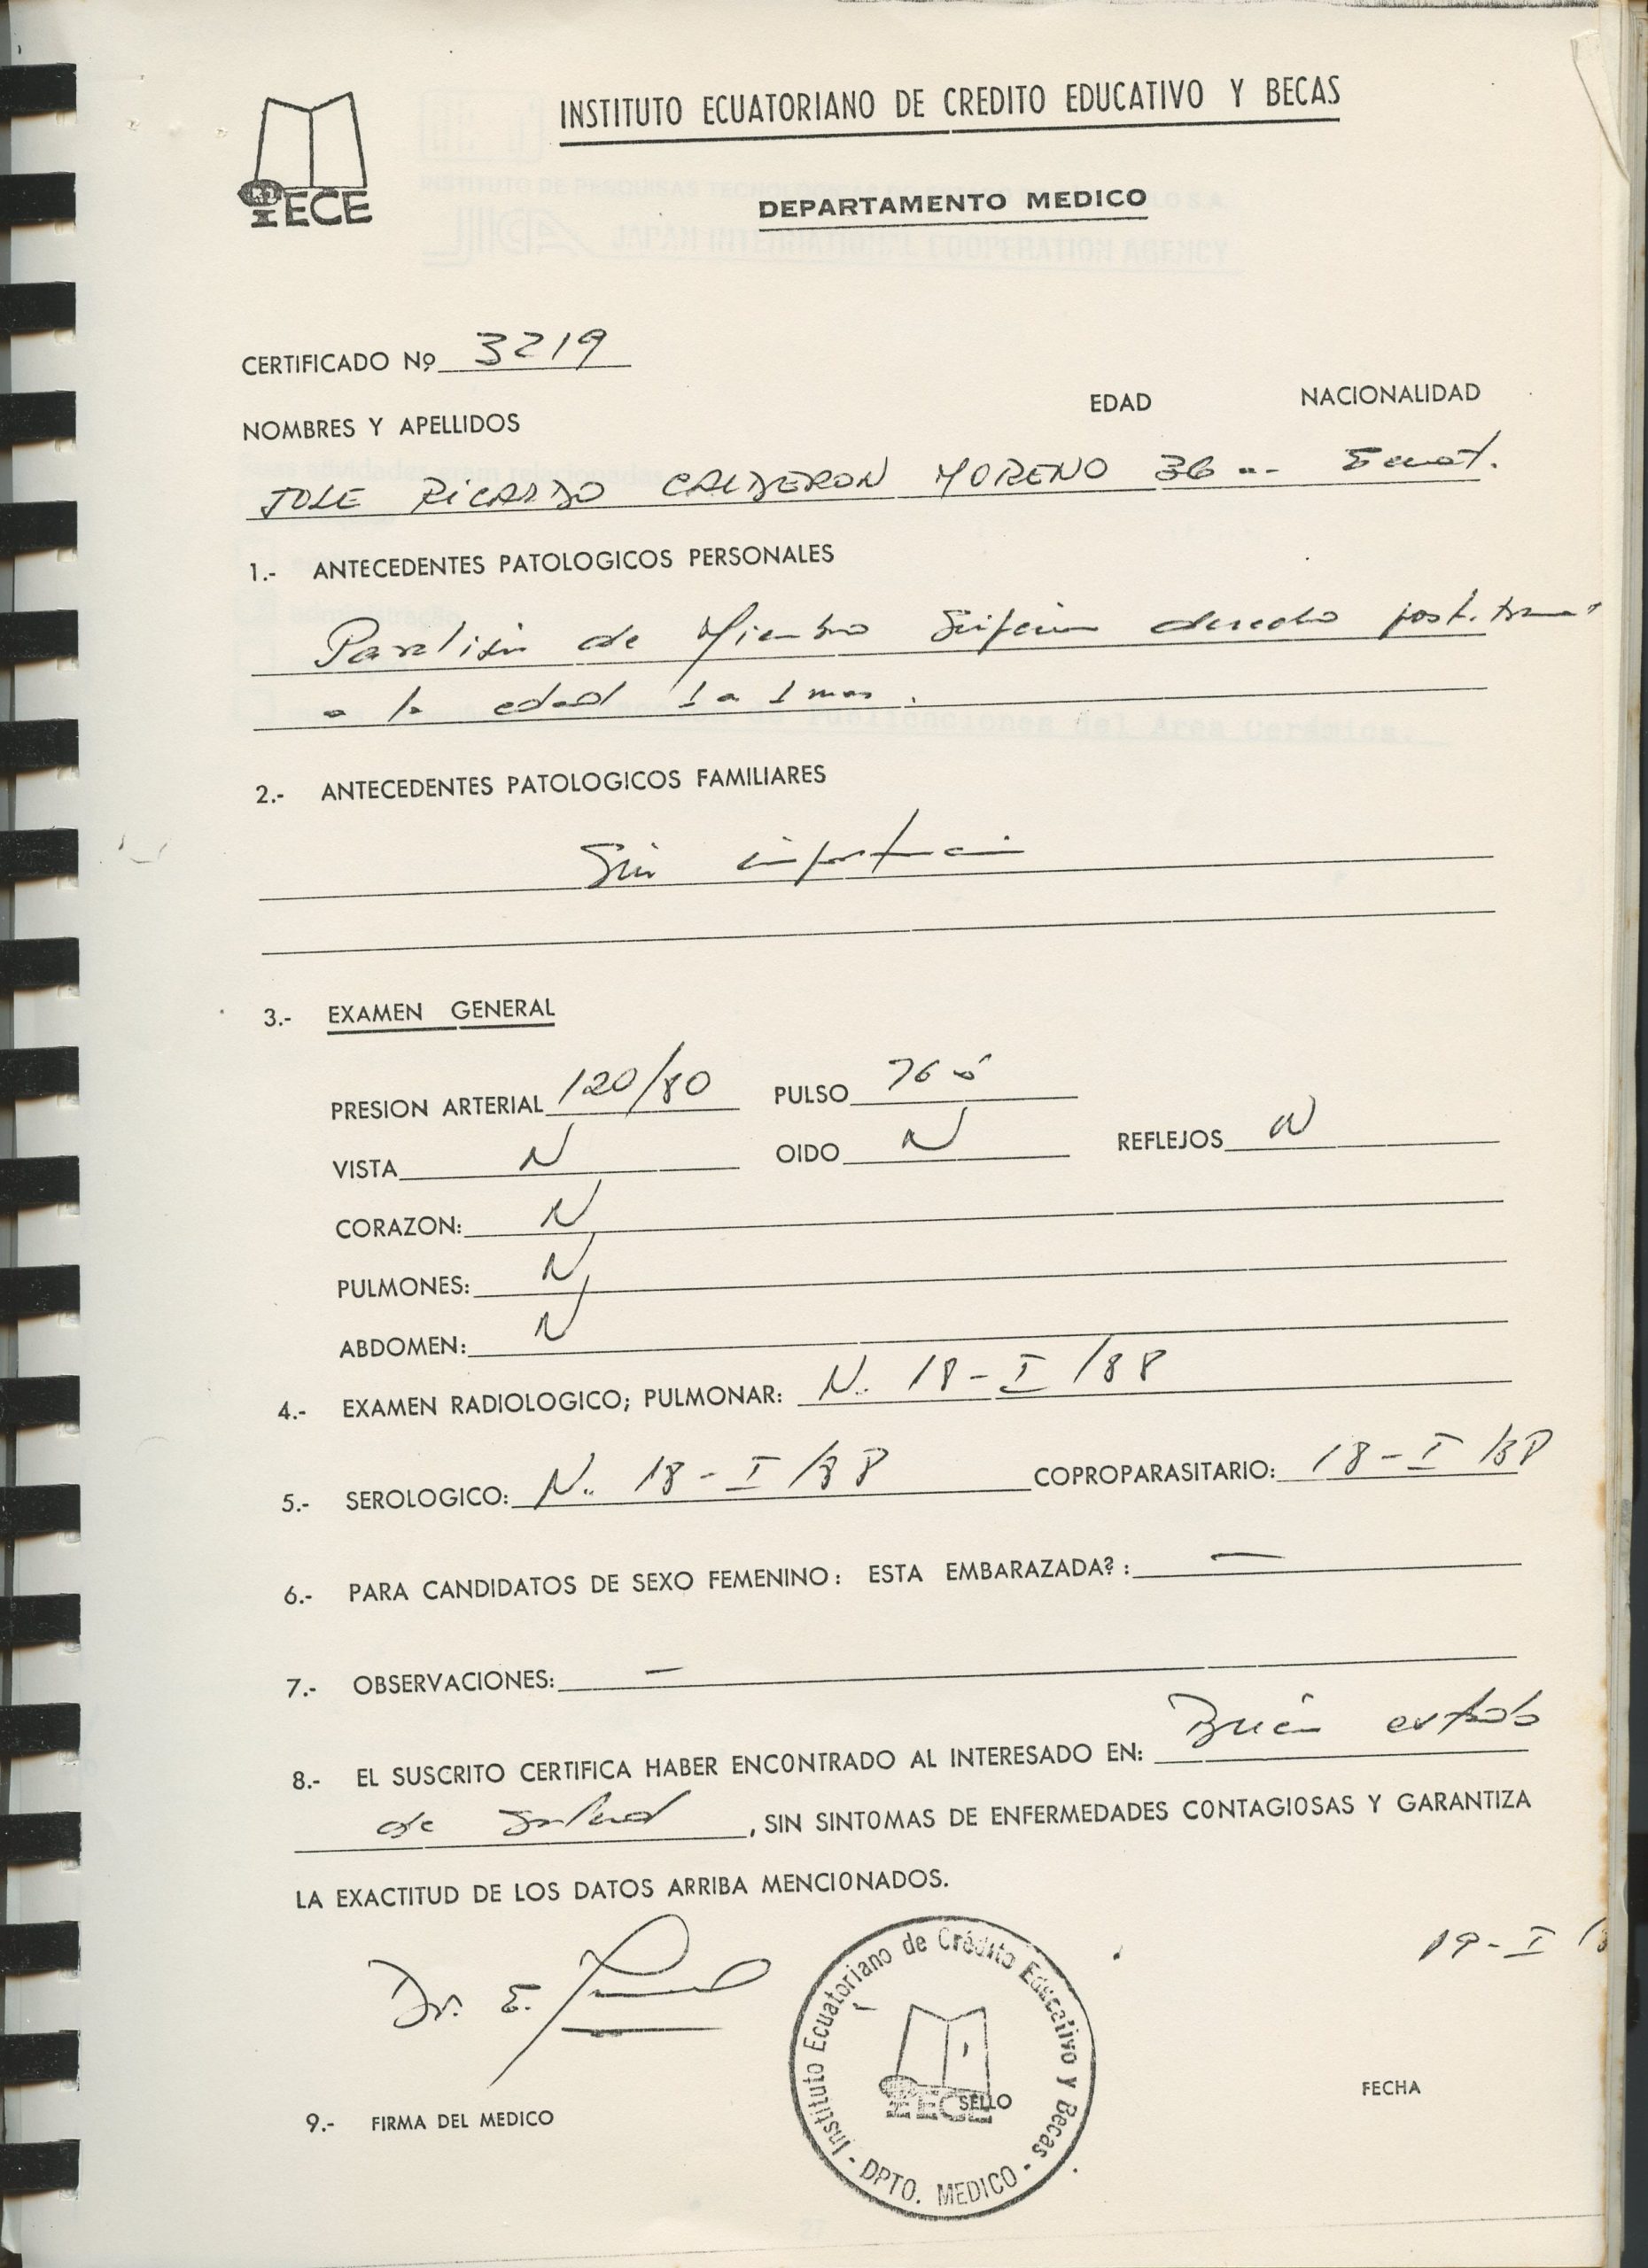 INSTITUTO ECUATORIANO DE CREDITO EDUCATIVO Y BECAS
IECE
DEPARTAMENTO MEDICO
CERTIFICADO Nº 3219
NOMBRES Y APELLIDOS EDAD NACIONALIDAD
JOSE RICARDO CALDERON MORENO 36 Ecuat.
1.- ANTECEDENTES PATOLOGICOS PERSONALES
de Miembro derecho post.
a la edad
2.- ANTECEDENTES PATOLOGICOS FAMILIARES
Sin importancia
3.- EXAMEN GENERAL
PRESION ARTERIAL 120/80 PULSO 76
VISTA N OIDO N REFLEJOS N
CORAZON: N
PULMONES: N
ABDOMEN: N
4.- EXAMEN RADIOLOGICO; PULMONAR: N.. 18-I/88
5.- SEROLOGICO: N.. 18-I/88 COPROPARASITARIO: 18-I/88
6.- PARA CANDIDATOS DE SEXO FEMENINO: ESTA EMBARAZADA?: —
7.- OBSERVACIONES: —
8.- EL SUSCRITO CERTIFICA HABER ENCONTRADO AL INTERESADO EN: Buen estado
de salud, SIN SINTOMAS DE ENFERMEDADES CONTAGIOSAS Y GARANTIZA
LA EXACTITUD DE LOS DATOS ARRIBA MENCIONADOS.
Dr. E.
19-I/
Instituto Ecuatoriano de Crédito Educativo y Becas
IECE
- DPTO. MEDICO -
9.- FIRMA DEL MEDICO SELLO FECHA